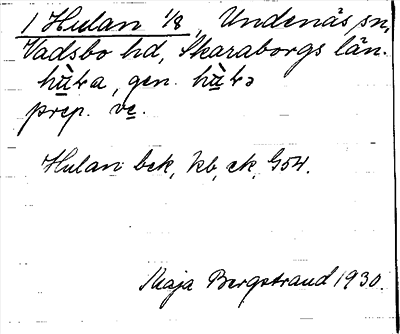 1 Hulan 1/8, Undenäs sn,
Vadsbo hd, Skaraborgs län.
gen.
prep. ve.
Hulan bck, kb, ek, G54.
Maja Bergstrand 1930.